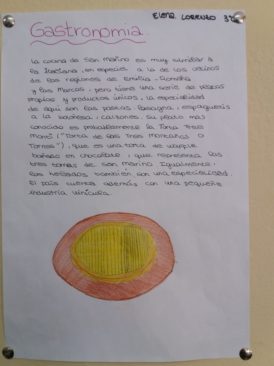 Elena Lorenzo 3º
Gastronomía
La cocina de San Marino es muy similar a
la italiana, en especial a la de los vecinos
de las regiones de Emilia-Romaña
y Las Marcas, pero tiene una serie de platos
propios y productos únicos. La especialidad
de aquí son las pastas: lasagna, espaguetis
a la boloñesa, canelones. Su plato más
conocido es probablemente la Torta Tres
Monti ("Torta de las Tres Montañas o
Torres"), que es una torta de waffle
bañada en chocolate, que representa las
tres torres de San Marino. Igualmente,
los helados también son una especialidad.
El país cuenta además con una pequeña
industria vinícola.